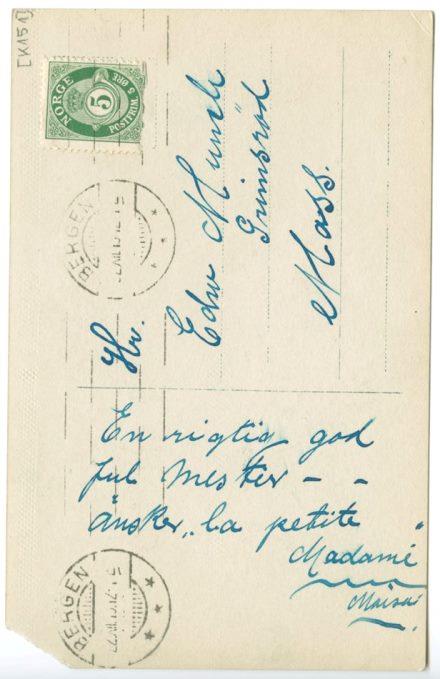 [K151]
NORGE
5
POSTFRIM. 5 ØRE
BERGEN
Hr.
Edw Munch
Grimsrød
Moss.
En rigtig god
jul Mester - -
ånsker „la petite
Madame"
BERGEN